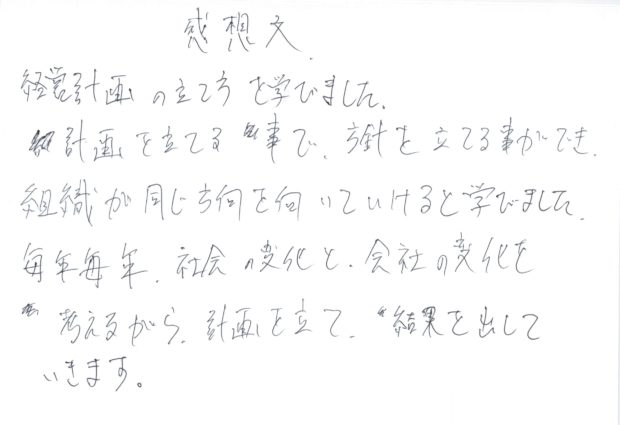 感想文.
経営計画の立て方を学びました.
計画を立てる事で、方針を立てる事ができ、
組織が同じ方向を向いていけると学びました.
毎年毎年、社会の変化と、会社の変化を
考えながら、計画を立て、結果を出して
いきます。